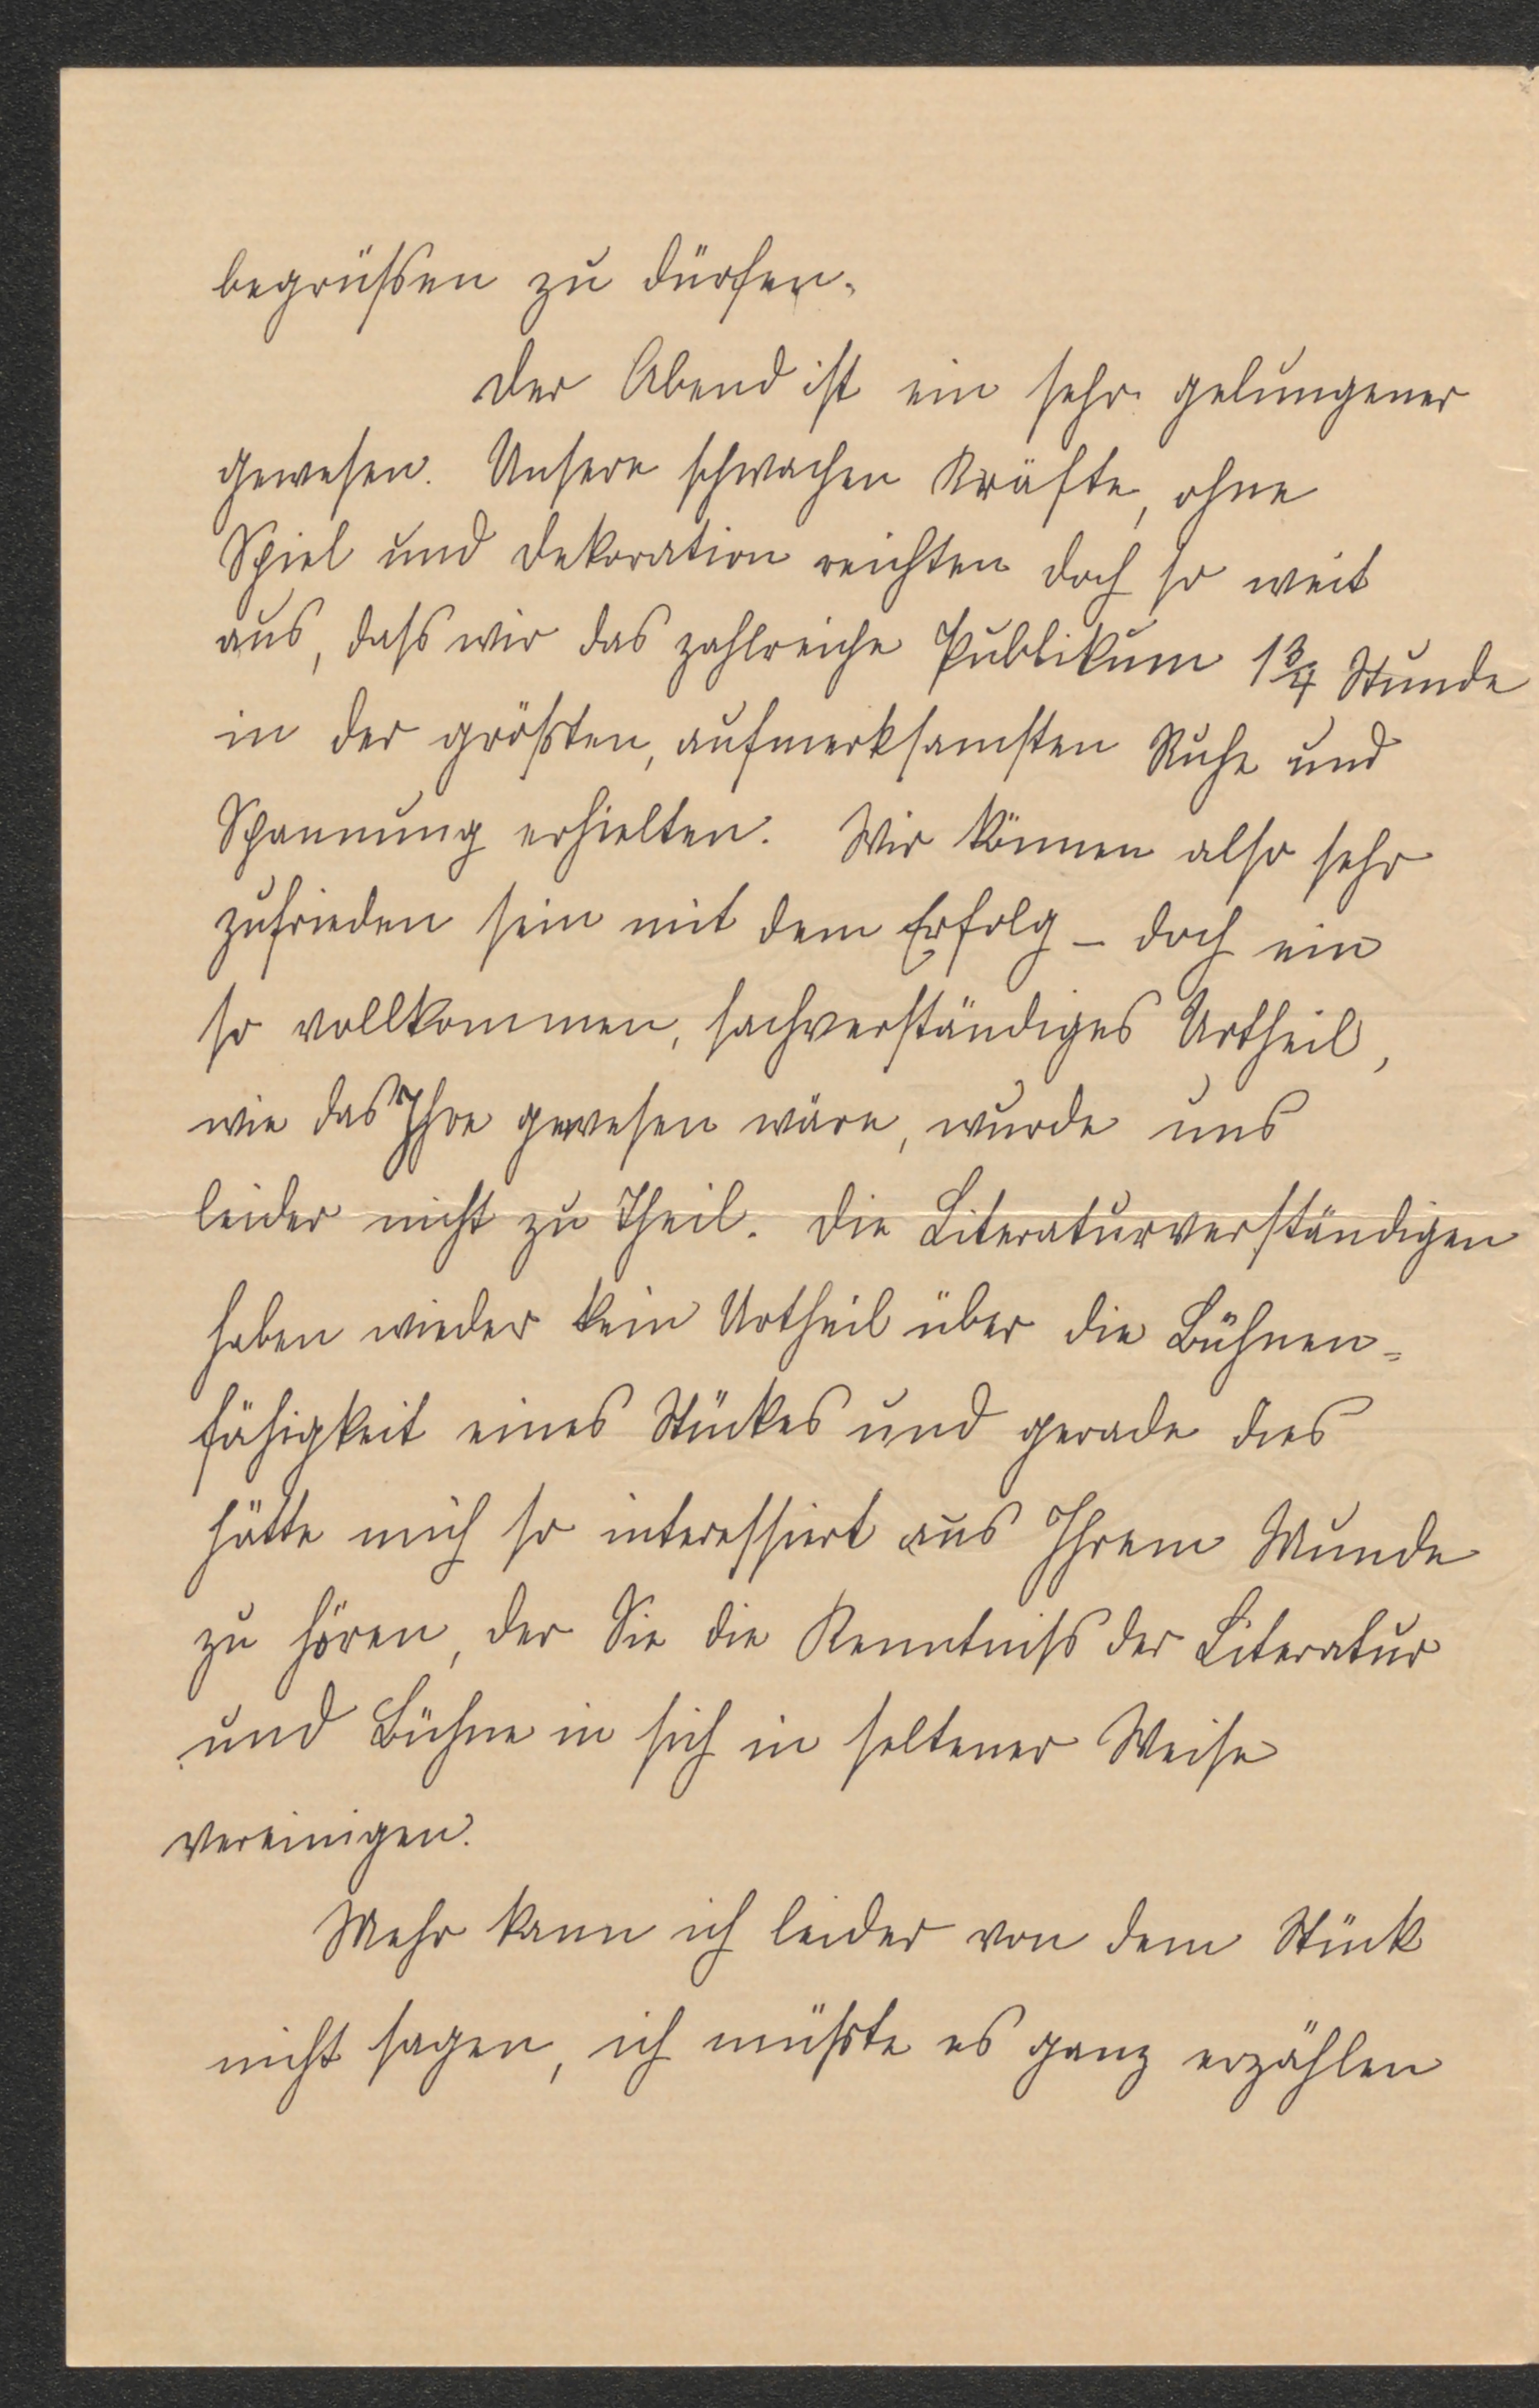 begrüßen zu dürfen.
Der Abend ist ein sehr gelungener
gewesen. Unsere schwachen Kräfte, ohne
Spiel und Dekoration reichten doch so weit
aus, dass wir das zahlreiche Publikum 1¾ Stunde
in der größten, aufmerksamsten Ruhe und
Spannung erhielten. Wir können also sehr
zufrieden sein mit dem Erfolg – doch ein
so vollkommen, sachverständiges Urtheil,
wie das Ihre gewesen wäre, wurde uns
leider nicht zu Theil. Die Literaturverständigen
haben wieder kein Urtheil über die Bühnen=
fähigkeit eines Stückes und gerade dies
hätte mich so interessiert aus Ihrem Munde
zu hören, der Sie die Kenntniss der Literatur
und Bühne in sich in seltener Weise
vereinigen.
Mehr kann ich leider von dem Stück
nicht sagen, ich müßte es ganz erzählen